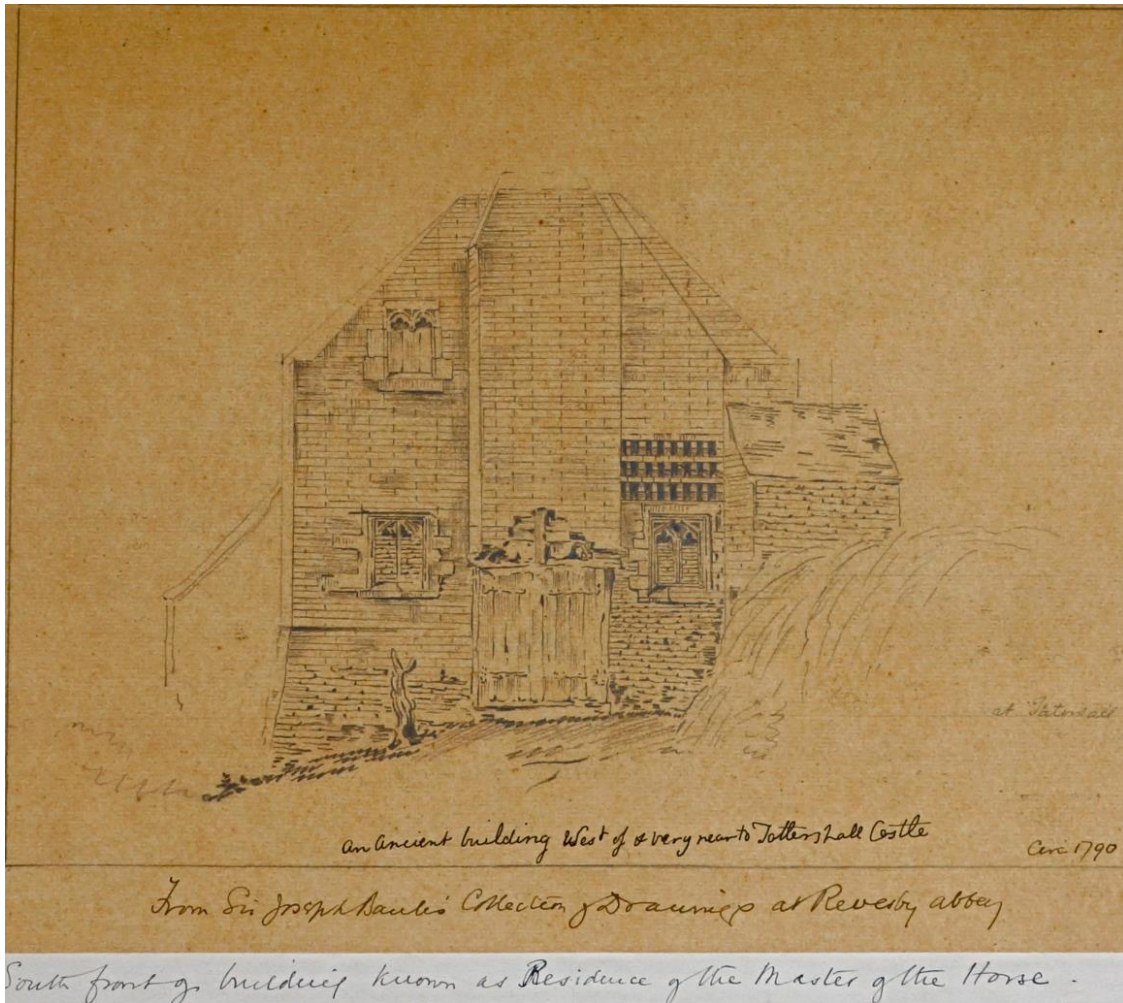 at Tatersall
an Ancient building West of & very near to Tattershall Castle
Circ 1790
From Sir Joseph Banks's Collection of Drawings at Revesby abbey
South front of building known as Residence of the Master of the Horse.